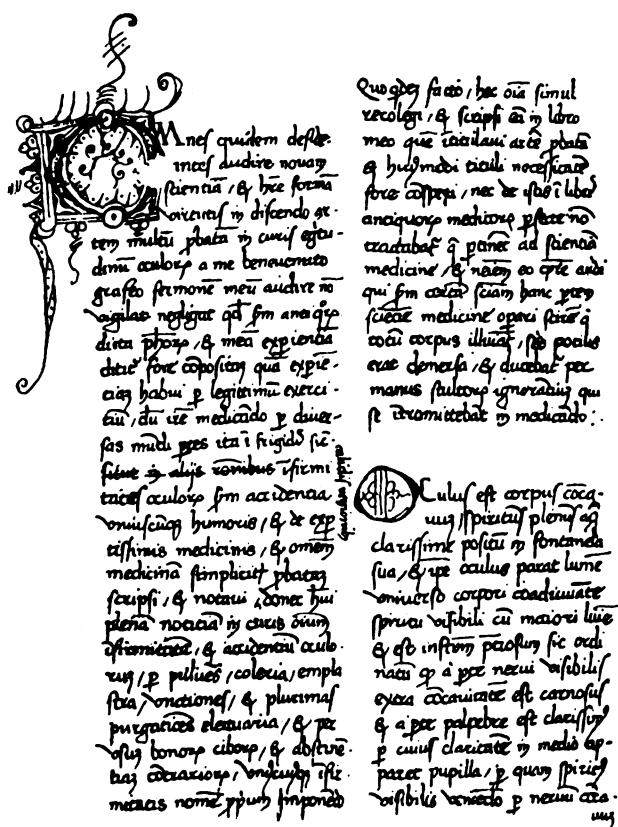 Omnes quidem deside-
rantes audire novam
scientiā, & hāc formā
virtutis in discendo ar-
tem multū ꝓbatā in curis egritu-
dinū oculorꝝ a me benevenuto
grafeo sermonē meū audire nō
vigilat negligat qđ scđm antiqͦrꝝ
dicta ph̄orꝝ, & meā experientiā
fore cōpositā quā expiē-
tiā habui ꝑ legitimū exerci-
tiū, dū irē medicādo ꝑ diver-
sas mūdi ptes ita ī frigidis sic-
in alijs ifirmi
tates oculorꝝ scđm accidentia
uniuscuiꝰqꝫ humoris, & de exꝑ
tissimis medicinis, & omēm
medicinā simpliciū ꝓbatā
scripsi, & notavi, donec hui
plenā noticiā in curis oīum
ifirmitatū, & accidentiū oculo-
rum, ꝑ pillules, coleria, empla
stra, unctiones, & plurimas
purgatiōes elettuaria, & per
usus bonorꝝ ciborꝝ, & abstinē-
tias cōtrariorꝝ, ifir-
mitatis nomē ꝓprium īmponēdo
calidis
Quo qdē facto, hec oīa simul
recolegi, & scripsi eā in libro
meo quē ītitulavi artē ꝓbatā
& huiꝰmodi tituli necessitatē
fore cōspexi, nec de istis ī libris
antiquorꝝ medicorꝝ ꝑfecte nō
tractabat q̄ ptinet ad scientiā
medicine, & neiēm eo
qui scđm certā sciam hanc ptem
sciētie medicine operi sciret q̄
totū corpus illuīat, sed pocius
erat demersa, & ducebat per
manus stultorꝝ ignorātiū qui
se ītromittebāt in medicādo:.
Oculus est corpus cōcą-
vum, spiritus plenus aq̄
clarissime positū in fontanella
sua, & ipe oculus parat lumē
universo corpori coadiuvāte
spiritu visibili cū maiori lūīe
& est instrm̄ p̄ciosum sic ordi
natū qꝫ a pte nervi visibilis
extra cōcavitatē est carnosus
& a pte palpebre est clarissimꝰ
ꝑ cuius claritatē in medio ap-
paret pupilla, ꝑ quam spiritꝰ
visibilis veniēdo ꝑ nervū cōca-
vum